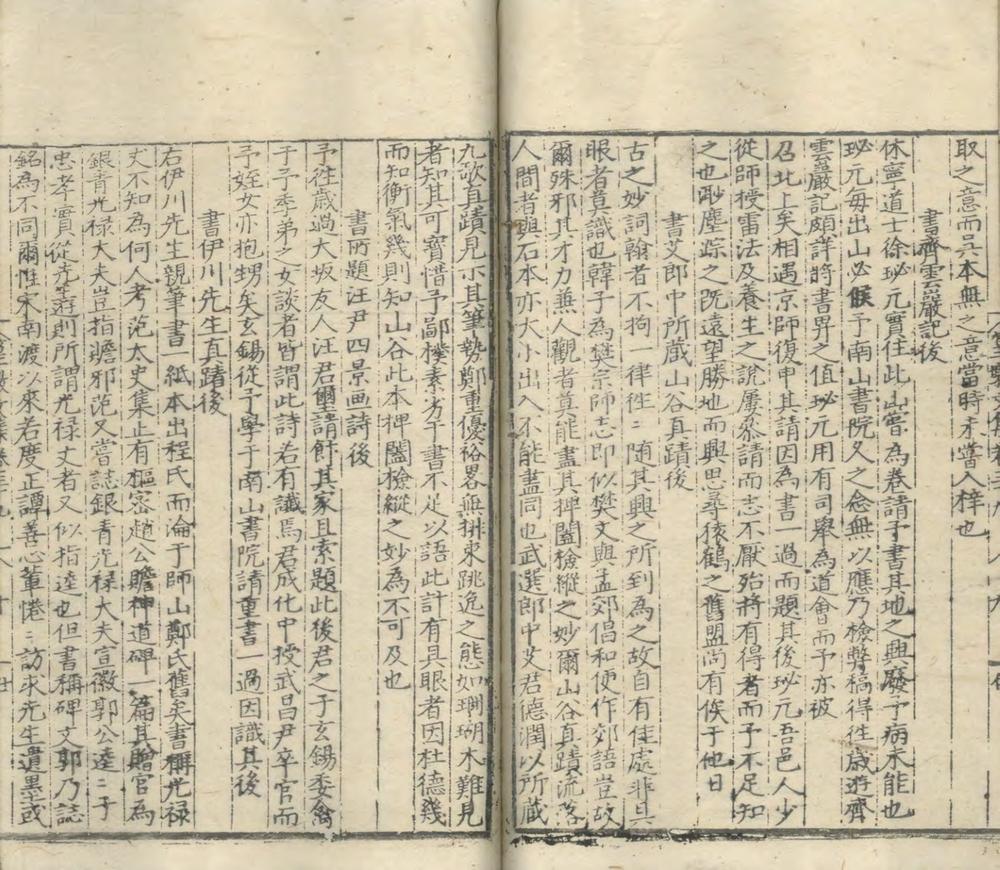 取之意而吳本無之意當時才嘗入梓也
書齊雲巖記後
休寧道士徐珌元實住此山嘗為卷請予書其地之興廢予病未能也
珌元每出山必候予南山書院久之念無以應乃檢弊稿得往歲遊齊
雲巖記頗詳將書畀之值珌元用有司舉為道會而予亦被
召北上矣相遇京師復申其請因為書一過而題其後珌元吾邑人少
從師授雷法及養生之說屢叅請而志不厭殆將有得者而予不足知
之也聊塵踪之既遠望勝地而興思尋猿鶴之舊盟尚有俟于他日
書艾郎中所蔵山谷真蹟後
古之妙詞翰者不拘一律徃〻随其興之所到為之故自有佳處非具
眼者莫識也韓子為樊宗師志即似樊文與孟郊倡和便作郊語豈故
爾殊邪其才力兼人觀者莫能盡其捭闔檢縱之妙爾山谷真蹟流落
人間者與石本亦大小出入不能盡同也武選郎中艾君德潤以所蔵
九歌真蹟見示其筆勢鄭重優裕畧無排束跳逸之態如珊瑚木難見
者知其可寳惜予鄙樸素劣于書不足以語此計有具眼者因杜德幾
而知衡氣幾則知山谷此本捭闔檢縱之妙為不可及也
書所題汪尹四景画詩後
予徃歲過大坂友人汪君璽請館其家且索題此後君之子玄錫委禽
于予季弟之女談者皆謂此詩若有讖焉君成化中授武昌尹卒官而
予姪女亦抱甥矣玄錫從予學于南山書院請重書一過因識其後
書伊川先生真蹟後
右伊川先生親筆書一紙本出程氏而淪于師山鄭氏舊矣書稱光禄
丈不知為何人考范太史集止有樞密趙公瞻神道碑一篇其贈官為
銀青光禄大夫豈指瞻邪范又嘗誌銀青光禄大夫宣徽郭公逵〻子
忠孝實從先生遊則所謂光禄丈者又似指逵也但書稱碑文郭乃誌
銘為不同爾惟宋南渡以來若度正譚善心輩惓〻訪求先生遺墨或